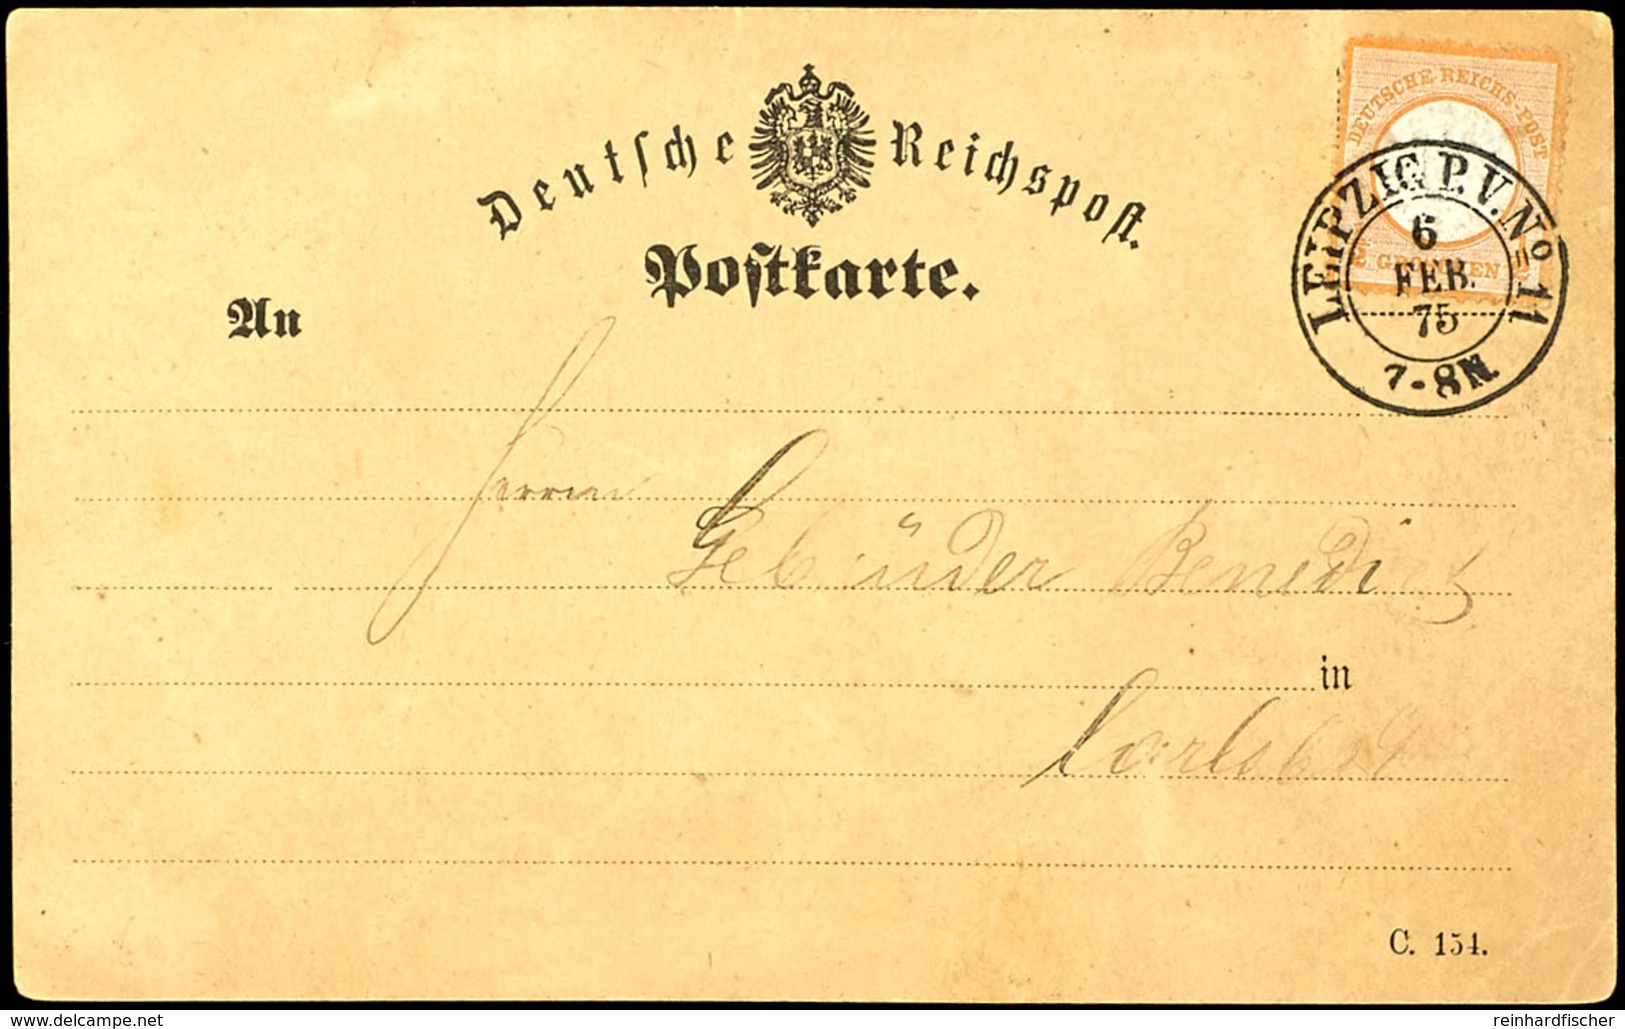 Deutsche Reichspost.
Postkarte.
DEUTSCHE REICHS-POST
½ GROSCHEN ½
LEIPZIG P.V. No 11
6
FEB.
75
7-8N.
An
Herren
Gebrüder Benedict
in
Carlsbad
C. 154.
www.delcampe.net
reinhardfischer